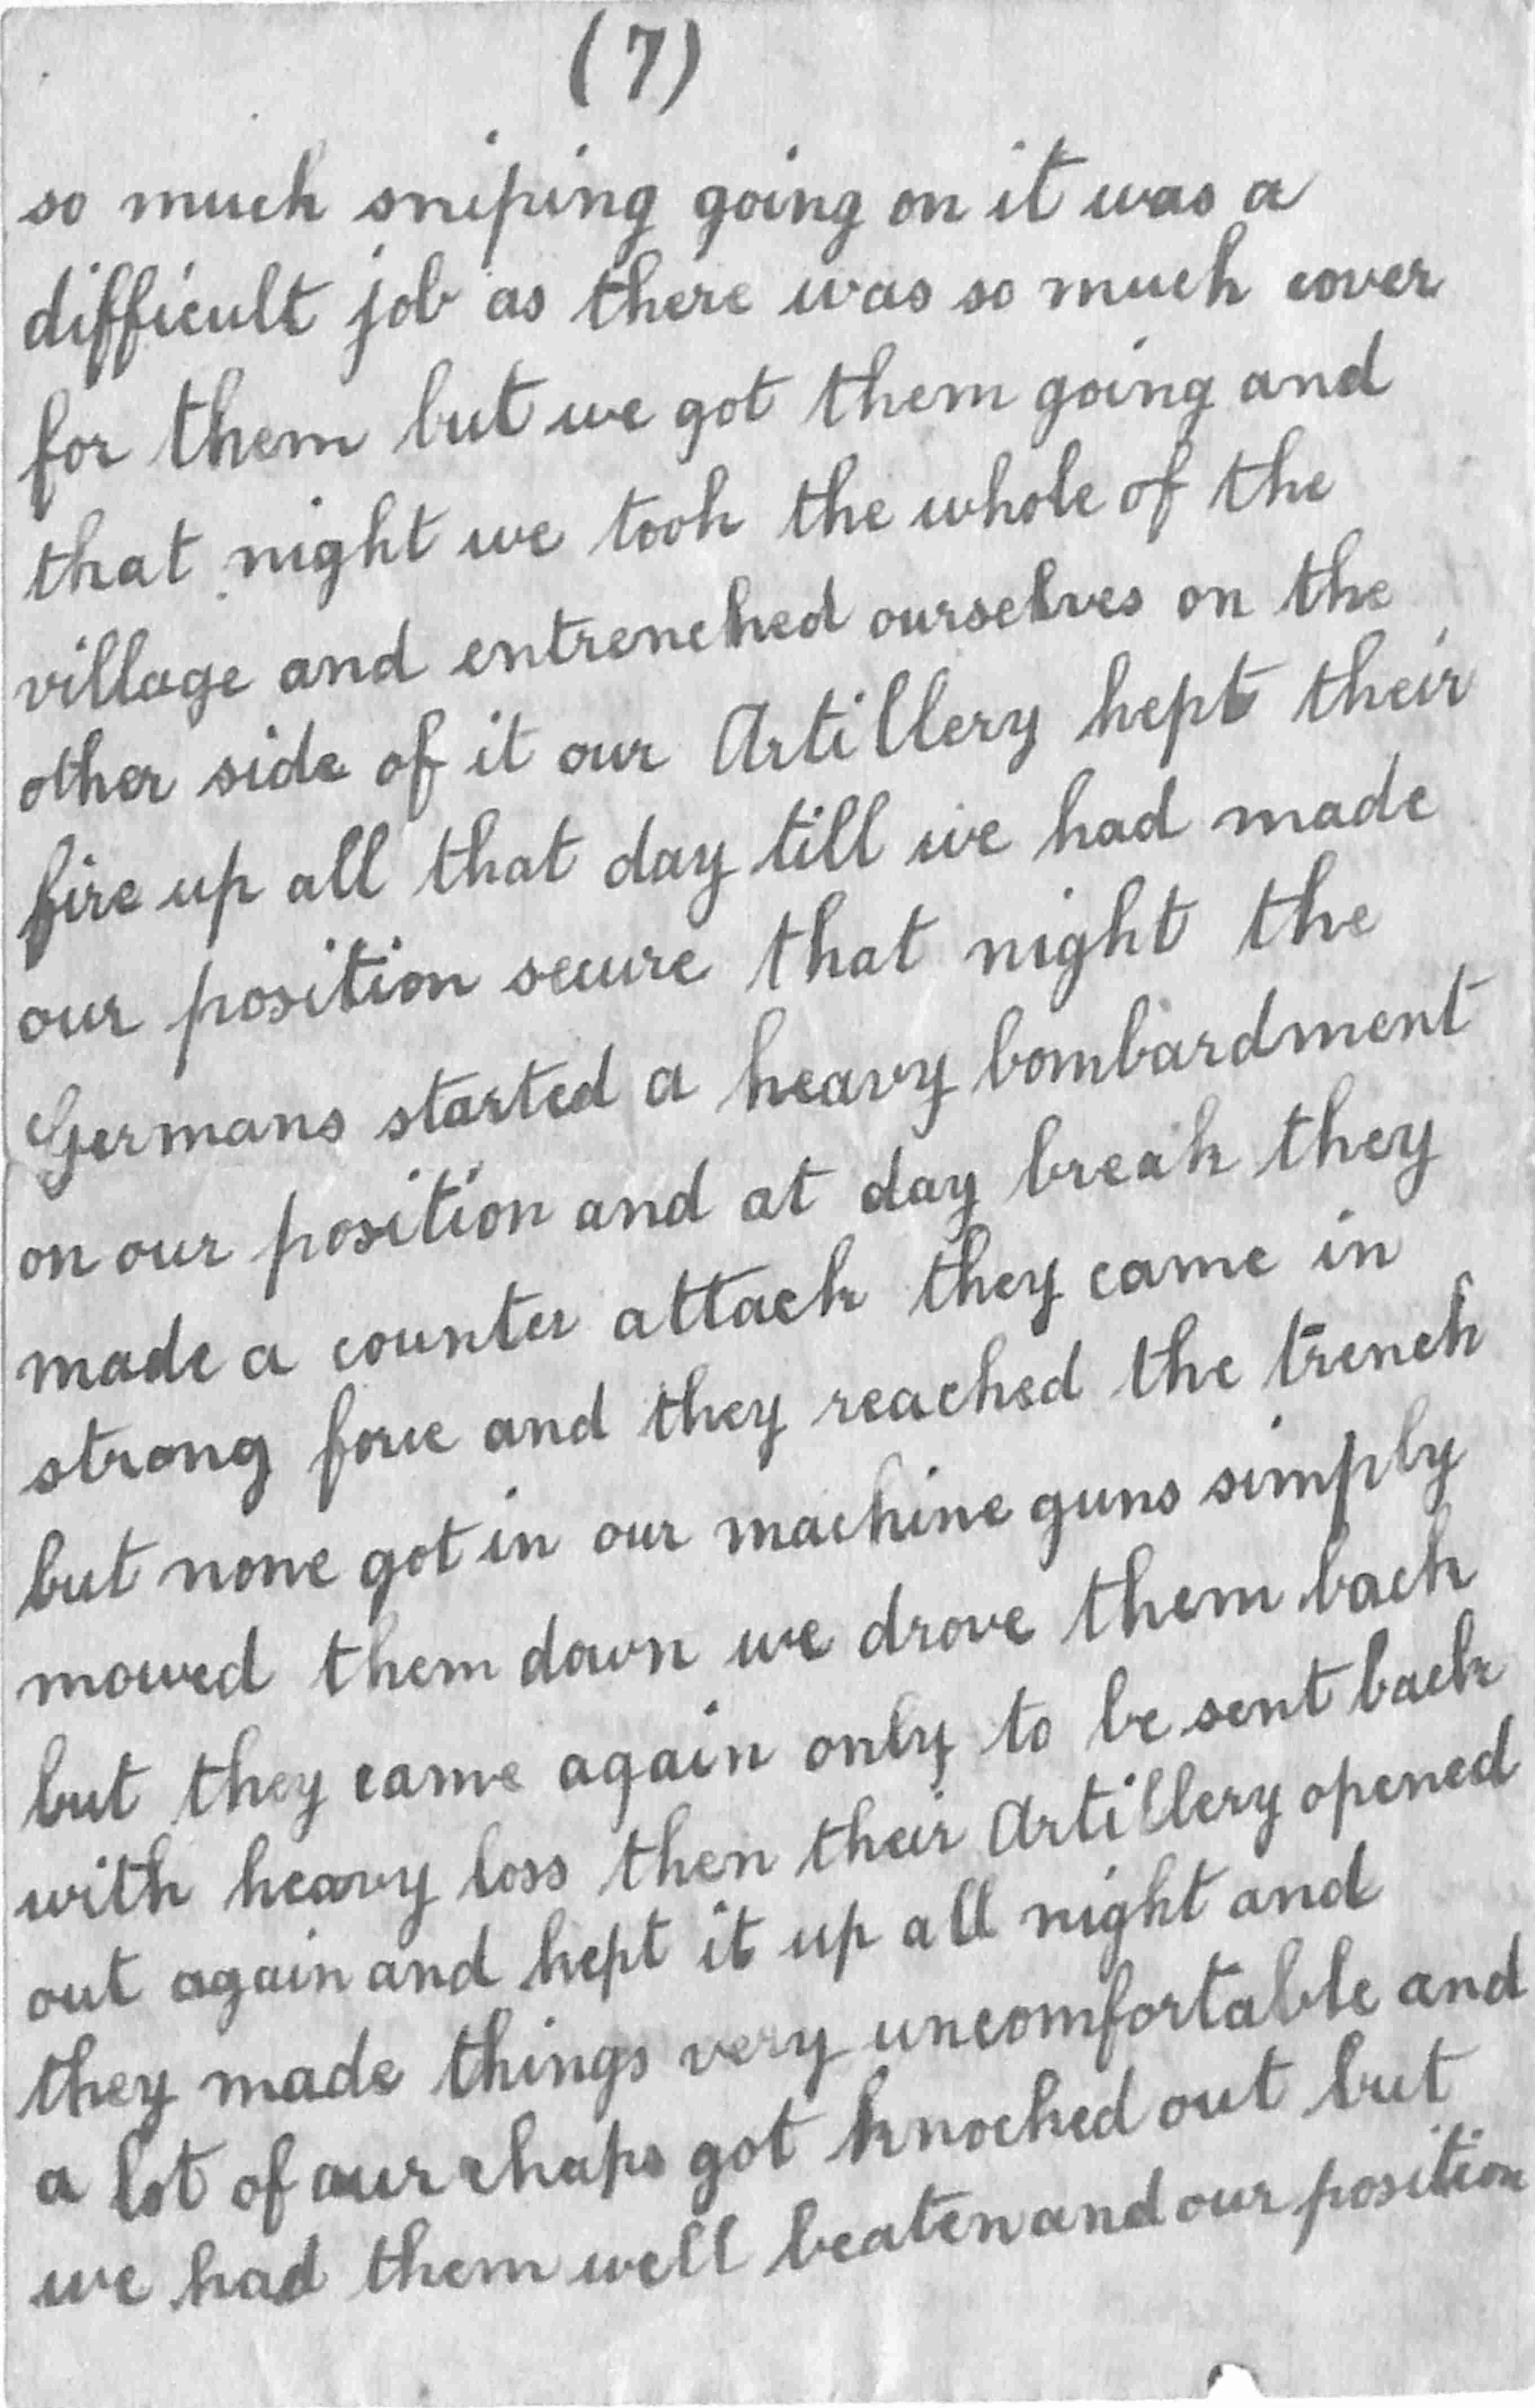 (7)
so much sniping going on it was a
difficult job as there was so much cover
for them but we got them going and
that night we took the whole of the
village and entrenched ourselves on the
other side of it our Artillery kept their
fire up all that day till we had made
our position secure that night the
Germans started a heavy bombardment
on our position and at day break they
made a counter attack they came in
strong force and they reached the trench
but none got in our machine guns simply
mowed them down we drove them back
but they came again only to be sent back
with heavy loss then their Artillery opened
out again and kept it up all night and
they made things very uncomfortable and
a lot of our chaps got knocked out but
we had them well beaten and our position